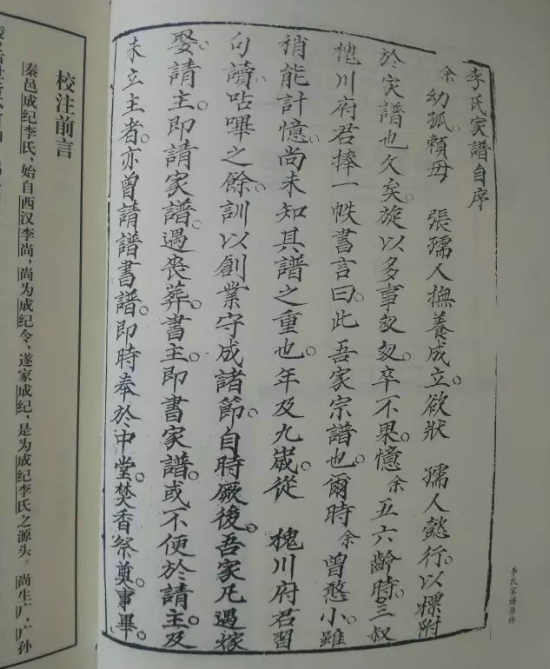 李氏家譜自序
余幼孤賴母 張孺人撫養成立。欲狀 孺人懿行。以標附
於家譜也久矣。旋以多事匆匆。卒不果。憶余五六齡時。三叔
槐川府君捧一帙書言曰。此吾家宗譜也。爾時余曾憨小。雖
稍能計憶。尚未知其譜之重也。年及九歲。從 槐川府君習
句讀。呫嗶之餘。訓以創業守成諸節。自時厥後。吾家凡遇嫁
娶。請主。即請家譜。遇喪葬。書主。即書家譜。或不便於請主。及
未立主者。亦曾請譜書譜。即時奉於中堂。焚香祭奠。事畢。
校注前言
秦邑成纪李氏，始自西汉李尚，尚为成纪令，遂家成纪，是为成纪李氏之源头。尚生广，广孙